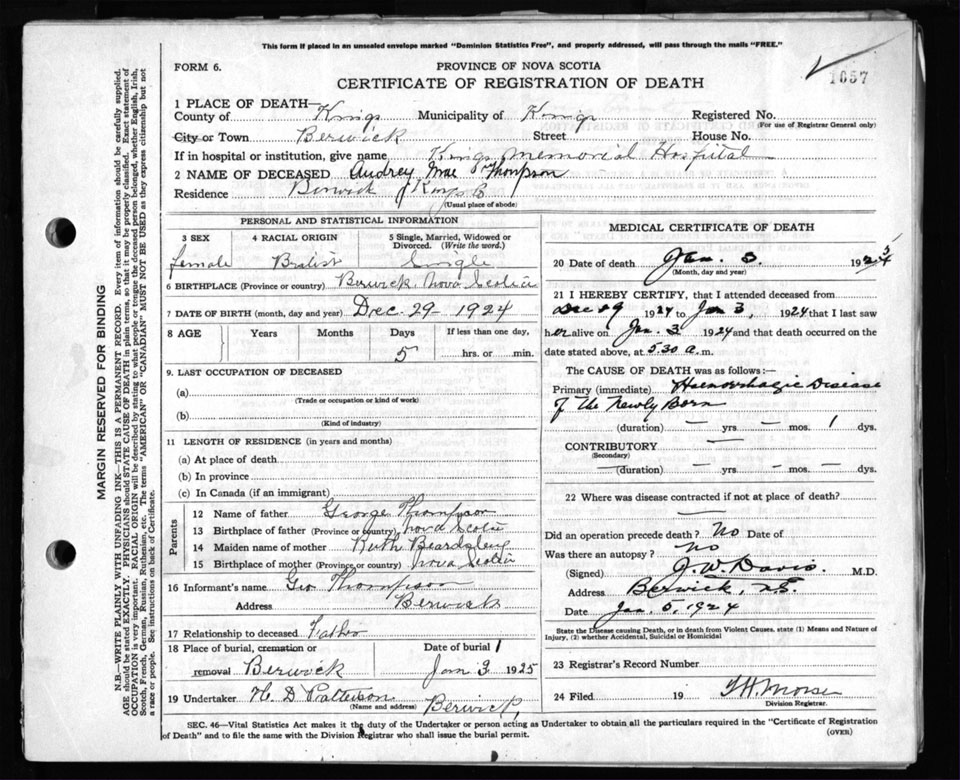 This form if placed in an unsealed envelope marked "Dominion Statistics Free", and properly addressed, will pass through the mails "FREE."
FORM 6.
PROVINCE OF NOVA SCOTIA
1657
CERTIFICATE OF REGISTRATION OF DEATH
1 PLACE OF DEATH—
County of Kings Municipality of Kings Registered No.
(For use of Registrar General only)
City or Town Berwick Street House No.
If in hospital or institution, give name Kings Memorial Hospital
2 NAME OF DECEASED Audrey Mae Thompson
Residence Berwick Kings Co
(Usual place of abode)
PERSONAL AND STATISTICAL INFORMATION
3 SEX 4 RACIAL ORIGIN 5 Single, Married, Widowed or Divorced. (Write the word.)
female British Single
6 BIRTHPLACE (Province or country) Berwick Nova Scotia
7 DATE OF BIRTH (month, day and year) Dec. 29 - 1924
8 AGE Years Months Days If less than one day,
5 hrs. or min.
9. LAST OCCUPATION OF DECEASED
(a)
(Trade or occupation or kind of work)
(b)
(Kind of industry)
11 LENGTH OF RESIDENCE (in years and months)
(a) At place of death
(b) In province
(c) In Canada (if an immigrant)
Parents
12 Name of father George Thompson
13 Birthplace of father (Province or country) Nova Scotia
14 Maiden name of mother Ruth Beardsley
15 Birthplace of mother (Province or country) Nova Scotia
16 Informant's name Geo Thompson
Address Berwick
17 Relationship to deceased Father
18 Place of burial, cremation or removal Berwick Date of burial Jan 3 1925
19 Undertaker H. D Patterson Berwick
(Name and address)
MEDICAL CERTIFICATE OF DEATH
20 Date of death Jan. 3. 1924
(Month, day and year)
21 I HEREBY CERTIFY, that I attended deceased from
Dec 29 1924 to Jan 3, 1924 that I last saw
her alive on Jan. 3 1924 and that death occurred on the
date stated above, at 5.30 a.m.
The CAUSE OF DEATH was as follows:—
Primary (immediate) Haemorrhagic Disease
of the Newly Born
(duration) — yrs — mos. 1 dys.
CONTRIBUTORY —
(Secondary)
(duration) — yrs. — mos. — dys.
22 Where was disease contracted if not at place of death?
Did an operation precede death? No Date of
Was there an autopsy? No
(Signed) J. W. Davis. M.D.
Address Berwick, N.S.
Date Jan, 1924
State the Disease causing Death, or in death from Violent Causes, state (1) Means and Nature of Injury, (2) whether Accidental, Suicidal or Homicidal
23 Registrar's Record Number
24 Filed 19 Morse
Division Registrar.
SEC. 46—Vital Statistics Act makes it the duty of the Undertaker or person acting as Undertaker to obtain all the particulars required in the "Certificate of Registration
of Death" and to file the same with the Division Registrar who shall issue the burial permit.
(OVER)
MARGIN RESERVED FOR BINDING
N.B. WRITE PLAINLY WITH UNFADING INK—THIS IS A PERMANENT RECORD. Every item of information should be carefully supplied.
AGE should be stated EXACTLY. PHYSICIANS should STATE CAUSE OF DEATH in plain terms, so that it may be properly classified. Exact statement of
OCCUPATION is very important. RACIAL ORIGIN will be described by stating to what people or tongue the deceased person belonged, whether English, Irish,
Scotch, French, German, Russian, Ruthenian, etc. The terms "AMERICAN" OR "CANADIAN" MUST NOT BE USED as they express citizenship but not
a race or people. See instructions on back of Certificate.